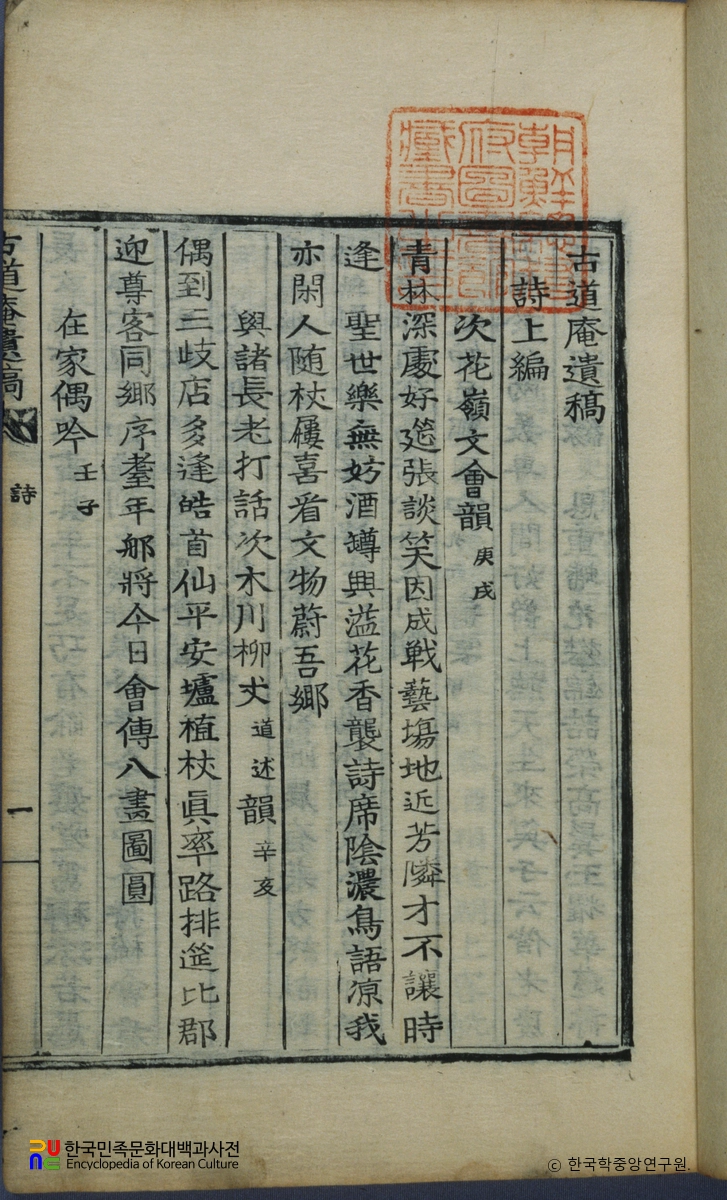 朝鮮總督府圖書館藏書之印
古道庵遺稿
詩上編
次花嶺文會韻 庚戌
青林深處好筵張談笑因成戰藝場地近芳隣才不讓時
逢 聖世樂無妨酒罇興溢花香襲詩席陰濃鳥語凉我
亦閑人随杖屨喜看文物蔚吾鄉
與諸長老打話次木川柳丈 道述 韻 辛亥
偶到三岐店多逢皓首仙平安壚植杖眞率路排筵比郡
迎尊客同鄉序耋年那將今日會傳入畵圖圓
在家偶吟 壬子
古道庵遺稿 詩 一
한국민족문화대백과사전
Encyclopedia of Korean Culture
ⓒ 한국학중앙연구원.